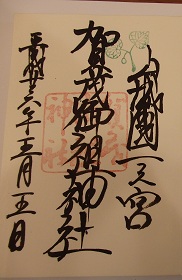 山城國一之宮
賀茂御祖神社
平成二六年十二月十五日